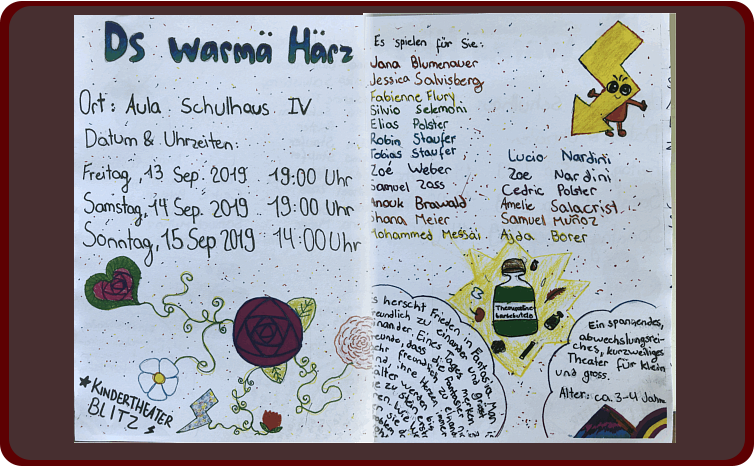 Ds warmä Härz
Ort: Aula Schulhaus IV
Datum & Uhrzeiten:
Freitag, 13 Sep. 2019 19:00 Uhr
Samstag, 14 Sep. 2019 19:00 Uhr
Sonntag, 15 Sep 2019 14:00 Uhr
★ KINDERTHEATER
BLITZ
Es spielen für Sie:
Jana Blumenauer
Jessica Salvisberg
Fabienne Flury
Silvio Selemoni
Elias Polster
Robin Staufer
Tobias Staufer
Zoé Weber
Samuel Zoss
Anouk Brawald
Shana Meier
Mohammed Messai
Lucio Nardini
Zoe Nardini
Cedric Polster
Amelie Salacrist
Samuel Muñoz
Ajda Borer
Es herscht Frieden in Fantasia. Man
freundlich zu einander und grüsst
einander. Eines Tages merken
Freunde, dass die Fantasier
mehr freundlich zu
und ihre Herzen immer
kälter werden bis
Ein spannendes,
abwechslungsrei-
ches, kurzweiliges
Theater für klein
und gross.
Alter: ca. 3-4 Jahre